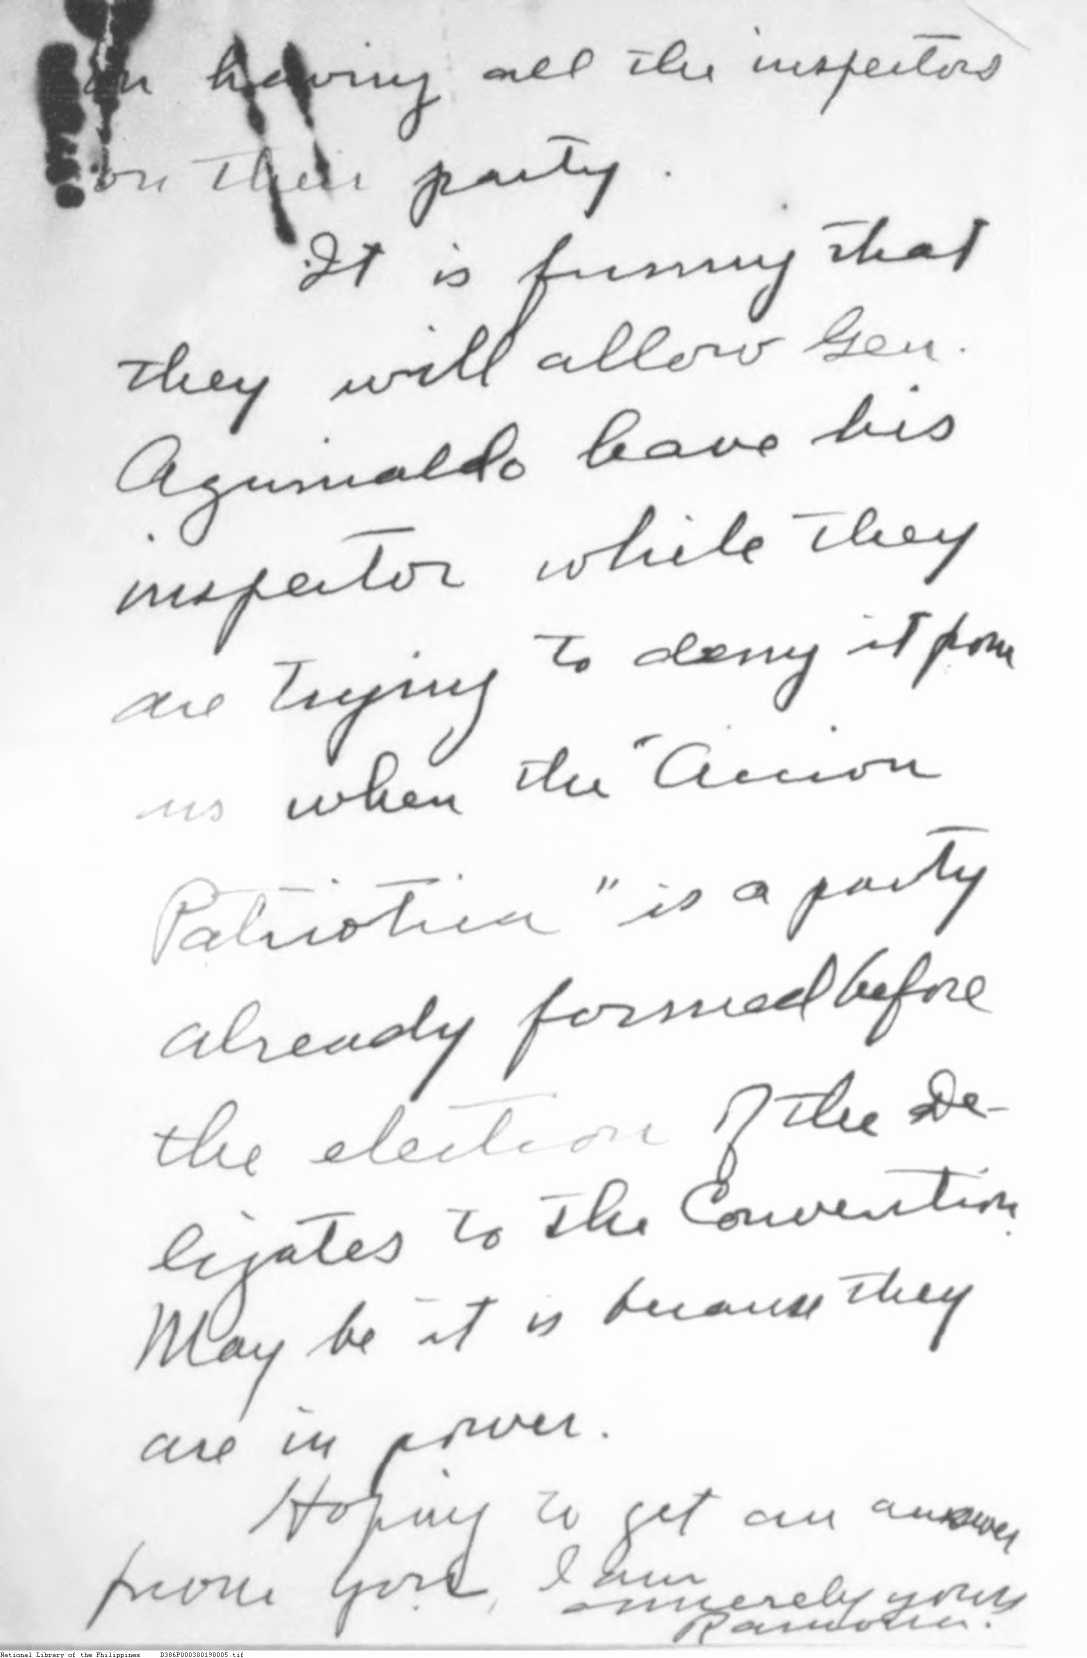 in having all the inspectors
on their party.
It is funny that
they will allow Gen.
Aguinaldo have his
inspector while they
are trying to deny it from
us when the "Accion
Patriotica" is a party
already formed before
the election of the De-
ligates to the Convention.
May be it is because they
are in power.
Hoping to get an answer
from you, I am
sincerely yours
Ramon.
National Library of the Philippines D386P000380198005.tif